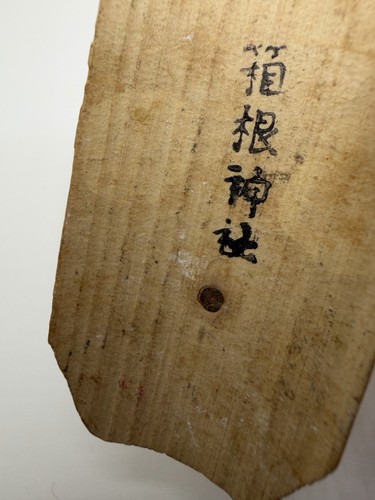 箱根神社